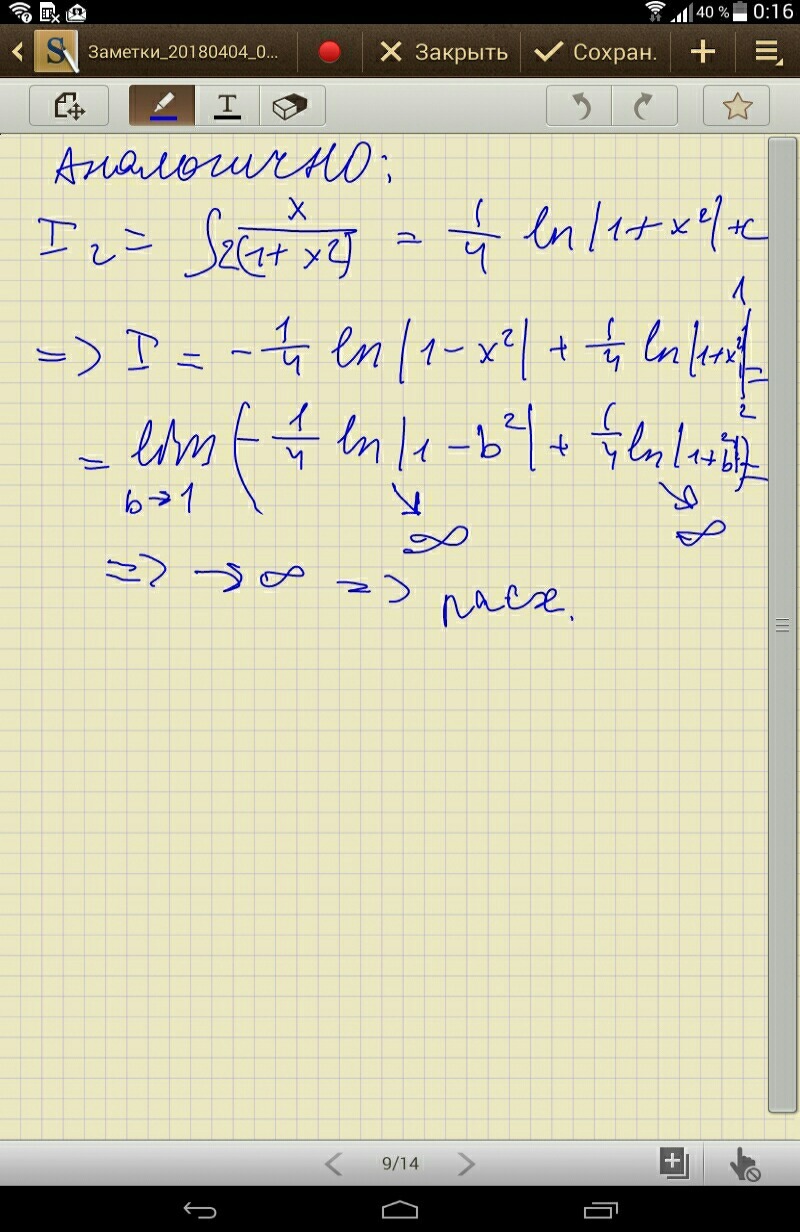 40 % 0:16
S Заметки_20180404_0... Закрыть Сохран.
T
Аналогично:
I₂ = ∫ x / 2(1+x2) = 1/4 ln|1+x²|+c
=> I = -1/4 ln|1-x²| + 1/4 ln|1+x²| |₂¹ =
= lim b→1 (-1/4 ln|1-b²| + 1/4 ln|1+b²|) =
↘ ∞ ↘ ∞
=> → ∞ => расх.
9/14